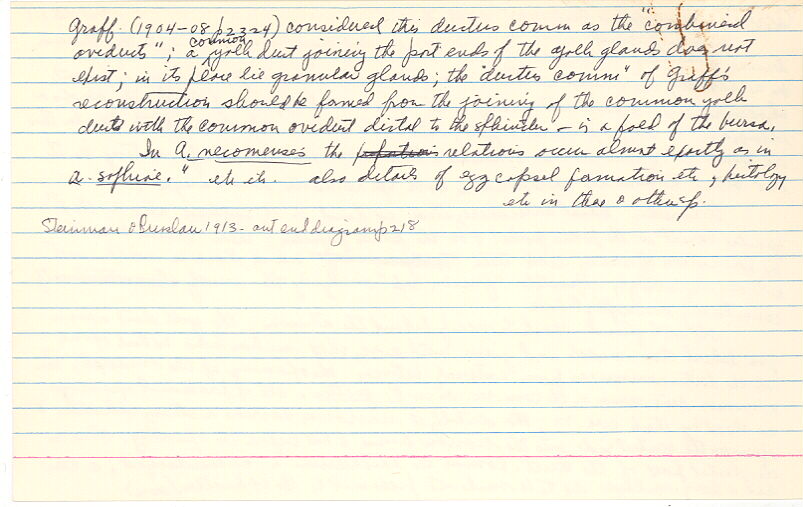 Graff. (1904-08 p2324) considered this ductus comm as the "combined
oviducts"; a common yolk duct joining the post ends of the yolk glands does not
exist; in its place lie granular glands; the "ductus comm" of Graff's
reconstruction should be formed from the joining of the common yolk
ducts with the common oviduct distal to the sphincter - is a part of the bursa.
In A. necomenses the relations occur almost exactly as in
a. sophiae." etc etc. also details of egg capsel formation etc, histology
etc in these & other sp.
Steinman & Bresslau 1913 - ant end diagram p218